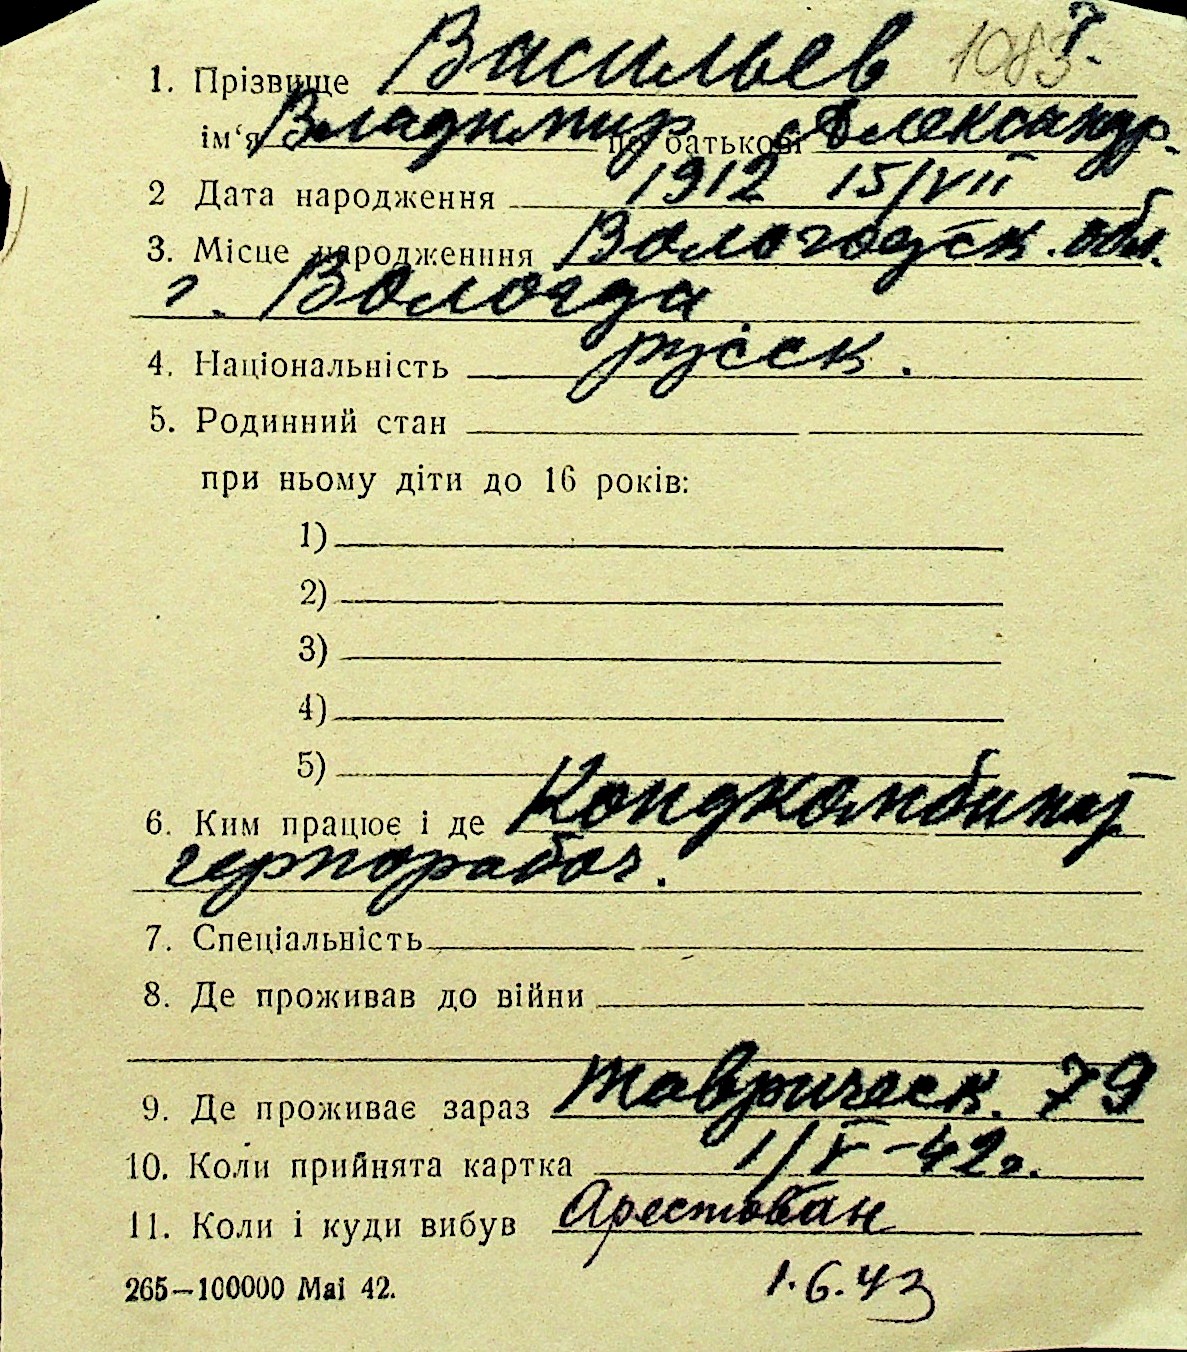 1. Прізвище Васильев 1083 Г.
ім‘я Владимир по батькові Александр.
2 Дата народження 1912 15/VII
3. Місце народженння Вологодск. обл.
г. Вологда
4. Національність русск.
5. Родинний стан
при ньому діти до 16 років:
1)
2)
3)
4)
5)
6. Ким працює і де Кондкомбинат
чернорабоч.
7. Спеціальність
8. Де проживав до війни
9. Де проживає зараз Таврическ. 79
10. Коли прийнята картка 1/V-42г.
11. Коли і куди вибув Арестован
1.6.43
265—100000 Mai 42.